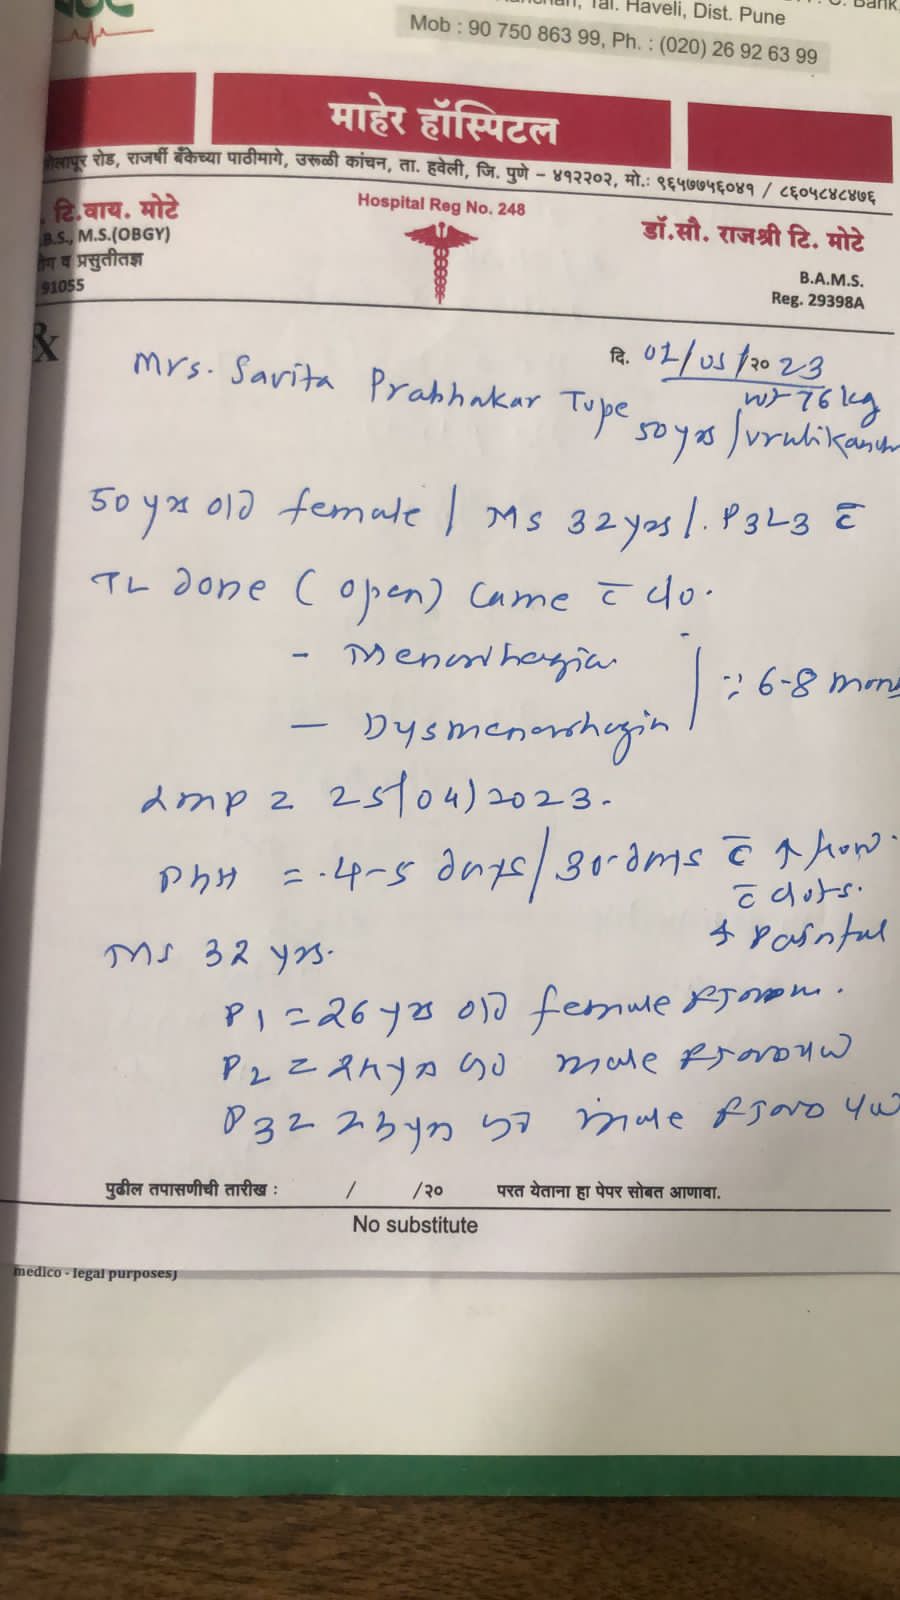 Tal. Haveli, Dist. Pune
Mob : 90 750 863 99, Ph. : (020) 26 92 63 99
माहेर हॉस्पिटल
रोड, राजर्षी बँकेच्या पाठीमागे, उरूळी कांचन, ता. हवेली, जि. पुणे - ४१२२०२, मो.: ९६५७७५६०४१ / ८६०५८४८४७६
टि.वाय. मोटे
B.S., M.S.(OBGY)
व प्रसुतीतज्ञ
91055
Hospital Reg No. 248
डॉ.सौ. राजश्री टि. मोटे
B.A.M.S.
Reg. 29398A
Rx
दि. 01/05/२० 23
Mrs. Savita Prabhakar Tupe
wt 76 kg
50 yrs /
50 yrs old female / MS 32 yrs /. P3L3 c̄
TL done (open) came c̄ c/o.
- Menorrhagia
- Dysmenorrhagia
6-8
LMP = 25/04/2023.
= 4-5 days / 30 days c̄ ↑ flow
c̄ clots.
painful
MS 32 yrs.
P1 = 26 yrs old female
P2 = yrs old male
P3 = 23 yrs old male
पुढील तपासणीची तारीख : / /२० परत येताना हा पेपर सोबत आणावा.
No substitute
medico - legal purposes)